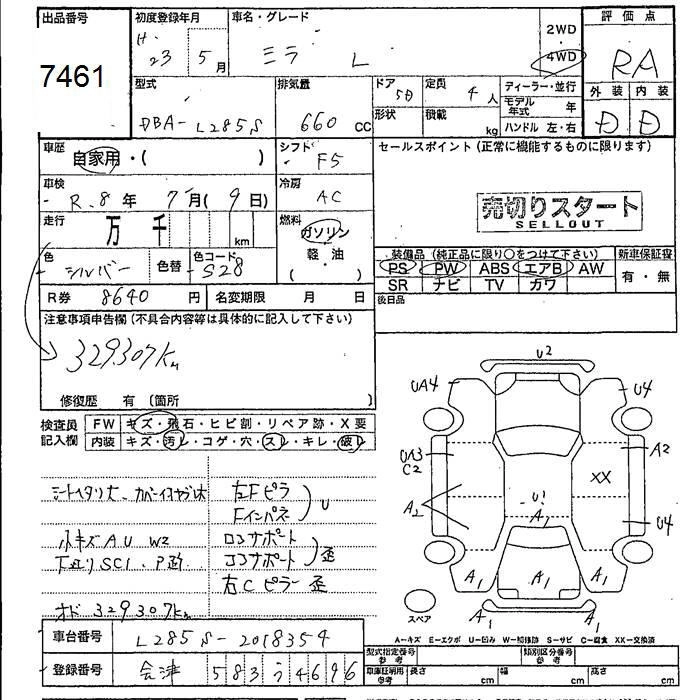 出品番号
7461
初度登録年月
H 23 5月
車名・グレード
ミラ L
2WD
・
4WD
評価点
RA
外装 内装
D D
型式
DBA-L285S
排気量
660 cc
ドア 5D
形状
定員 4人
積載 kg
ディーラー・並行
モデル年式 年
ハンドル 左・右
車歴
自家用・( )
シフト
F5
セールスポイント (正常に機能するものに限ります)
車検
R.8年 7月(9日)
冷房
AC
売切りスタート
SELLOUT
走行
万 千 km
燃料
ガソリン
軽・油
( ・ )
色
シルバー
色替
色コード
S28
装備品 (純正品に限り○をつけて下さい)
新車保証書
PS PW ABS エアB AW
有・無
SR ナビ TV カワ
R券 8640 円
名変期限 月 日
後日品
注意事項申告欄 (不具合内容等は具体的に記入して下さい)
329307km
修復歴 有 (箇所 )
検査員
記入欄
FW キズ・飛石・ヒビ割・リペア跡・X要
内装 キズ・汚レ・コゲ・穴・スレ・キレ・破レ
左Fピラ
Fインパネ U
小キズ A.U W2
コアサポート 歪
右Cピラー 歪
オド 329307km
車台番号 L285S-2018354
登録番号 会津 583 う 4696
U2
UA4
U4
UA3
C2
A2
XX
A2
U1
A1
U4
A1
A1
A1
A1
A1
スペア
A-キズ E-エクボ U-凹み W-補修跡 S-サビ C-腐食 XX-交換済
型式指定番号
参考
類別区分番号
参考
車庫証明用
参考
長さ cm
幅 cm
高さ cm